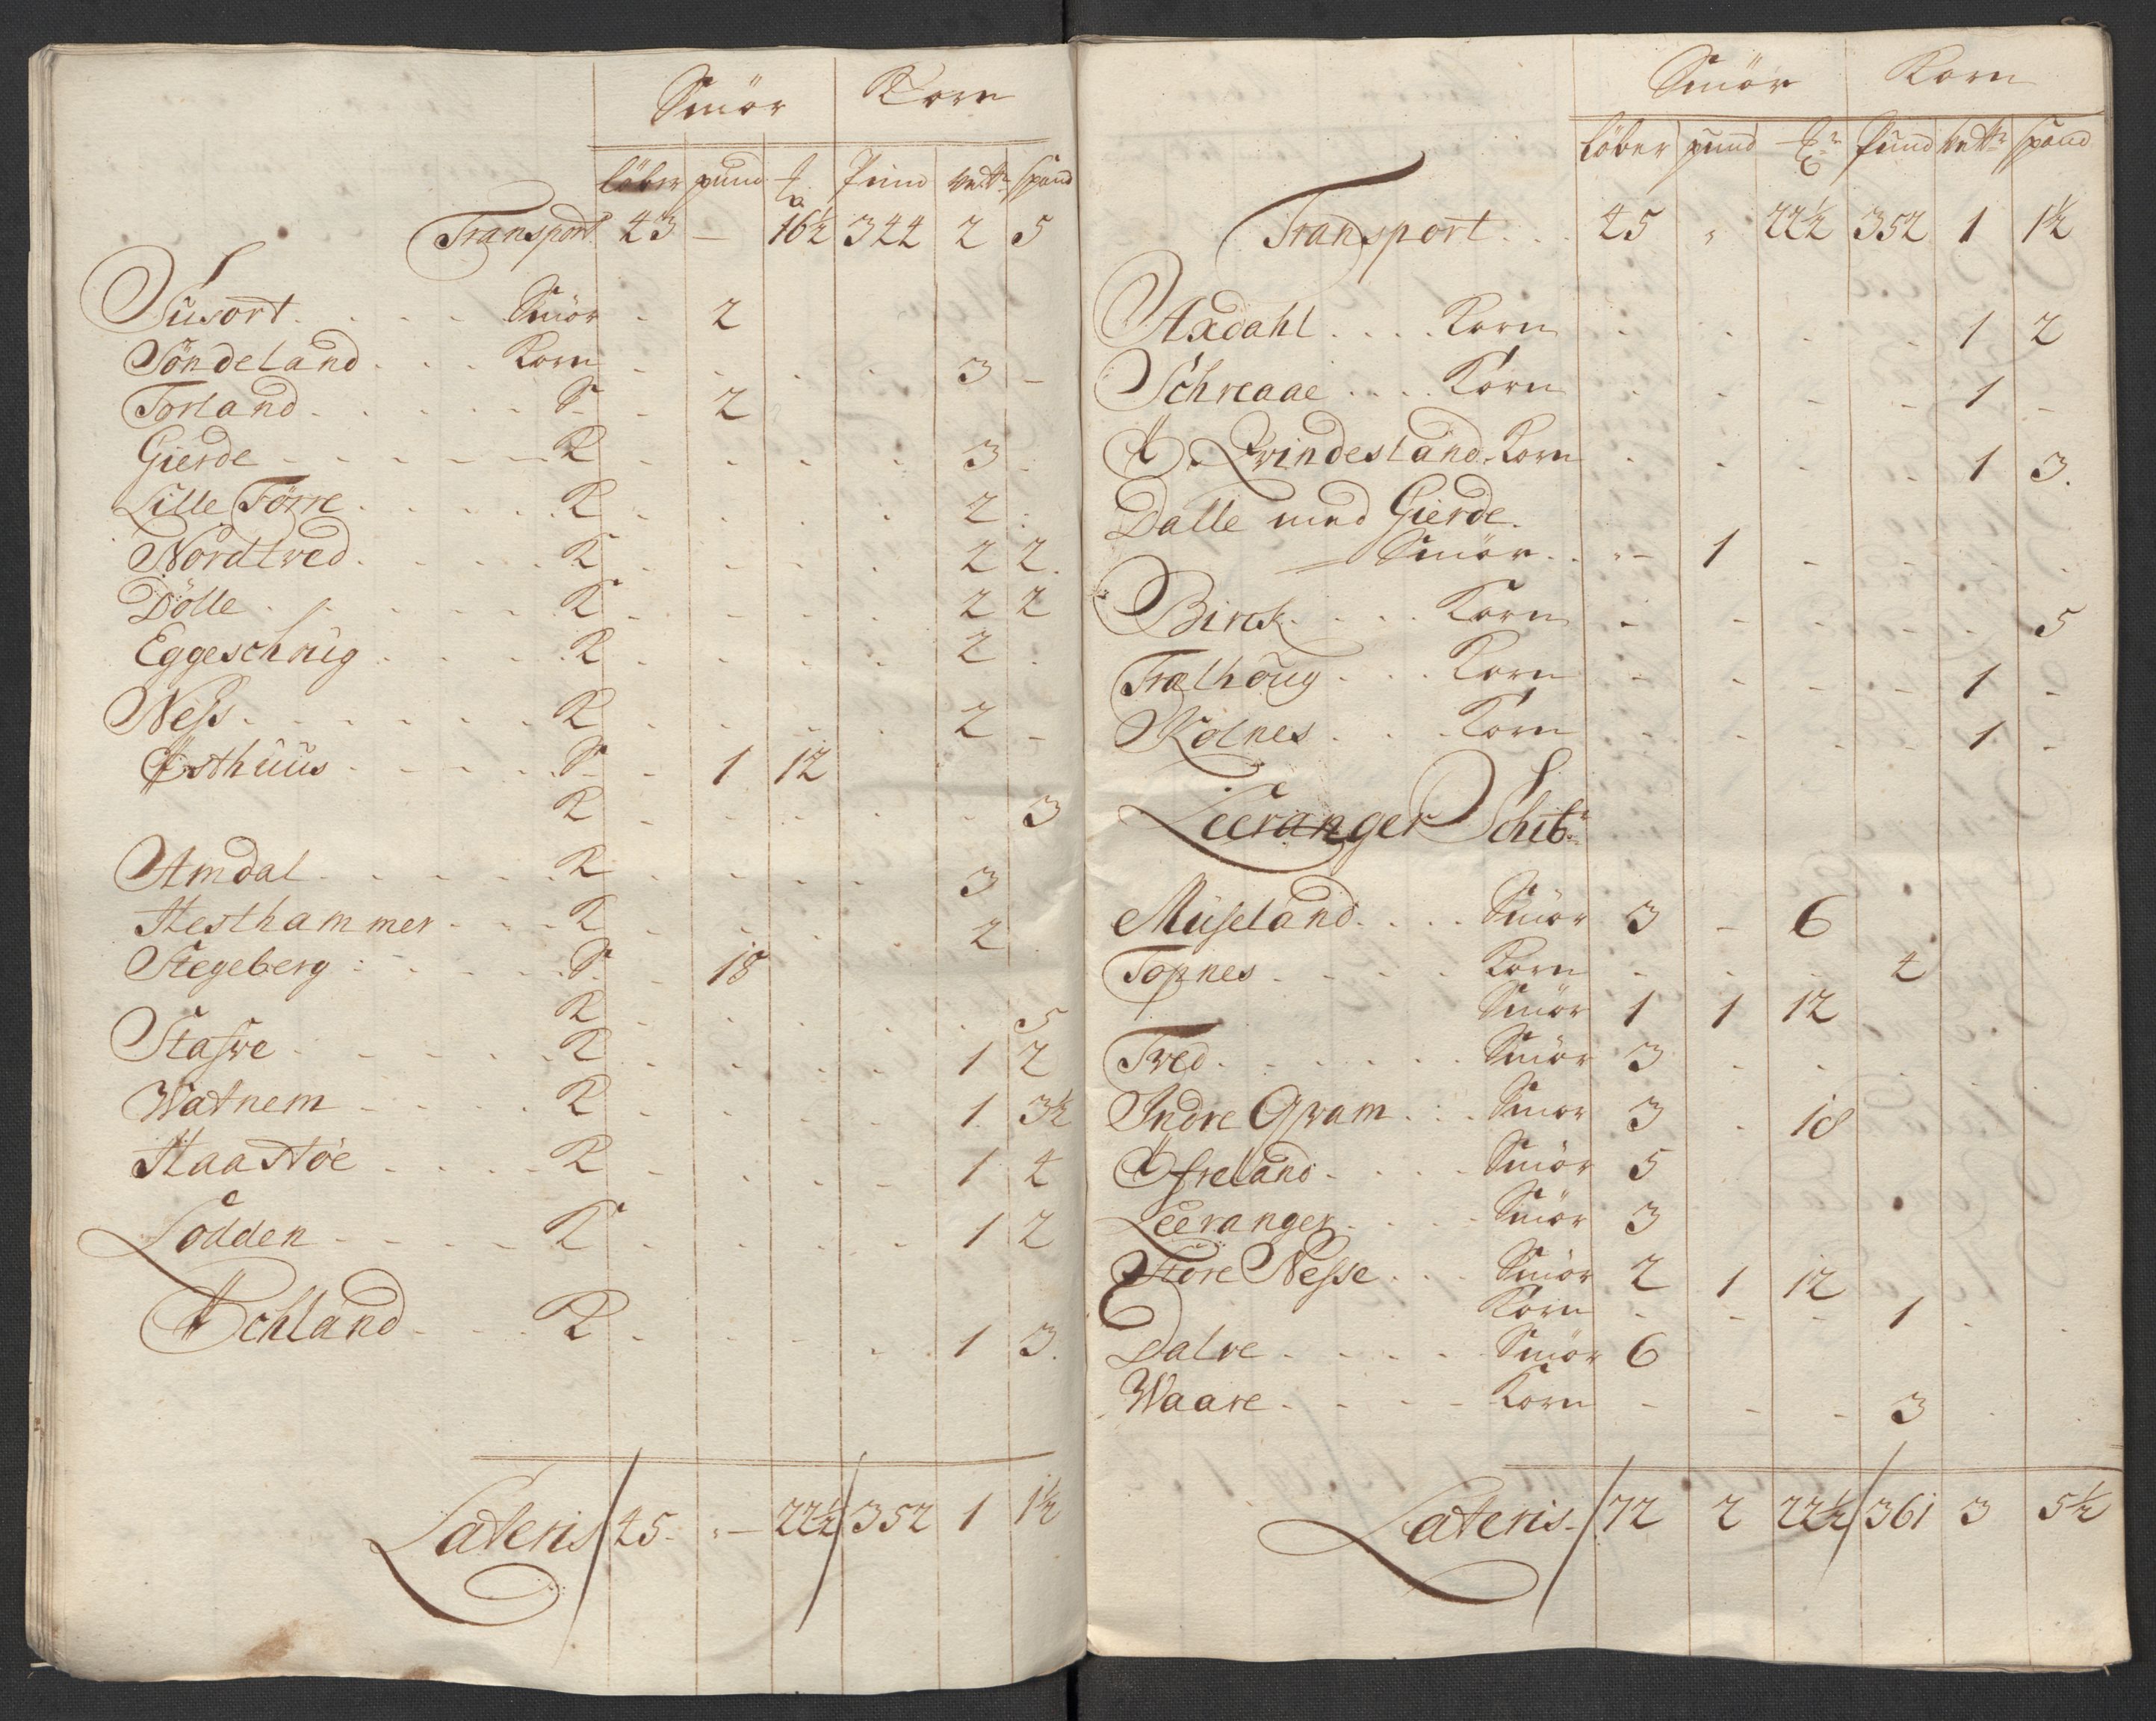 Smör Korn
löber pund Pund spand
Transport 43 — 16½ 344 2 5
Susort. Smör 2
Söndeland Korn 3 –
Torland S 2
Gierde K 3
Lille Förre K 2
Nordtved K 2 2
Dölle K 2 2
Eggeschoug K 2
Ness K 2 –
Østhuus S 1 12
K 3
Amdal K 3
Hesthammer K 2
Stegeberg S 18
K 5
Stasve K 1 2
Watnem K 1 3½
Haastöe K 1 4
Lodden K 1 2
Øchland K 1 3
Lateris 45 – 22½ 352 1 1½
Smör Korn
löber pund pund spand
Transport 45 „ 22½ 352 1 1½
Axdahl Korn 1 2
Schreaae Korn 1 –
Qvindesland Korn 1 3
Dalle med Gierde.
Smör 1
Birck Korn 5
Trælhoug Korn 1 –
Kolnes Korn 1 –
Leeranger Schib:
Museland Smör 3 – 6
Topnes Korn 4
Smör 1 1 12
Tved Smör 3
Indre Qvam Smör 3 18
Øfreland Smör 5
Leeranger Smör 3
Store Nesse Smör 2 1 12
Korn 1
Dalve Smör 6
Waare Korn 3
Lateris 72 2 22½ 361 3 5½